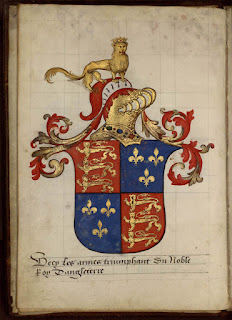 Decy les armes triumphant Du Noble
Roy Dangleterre